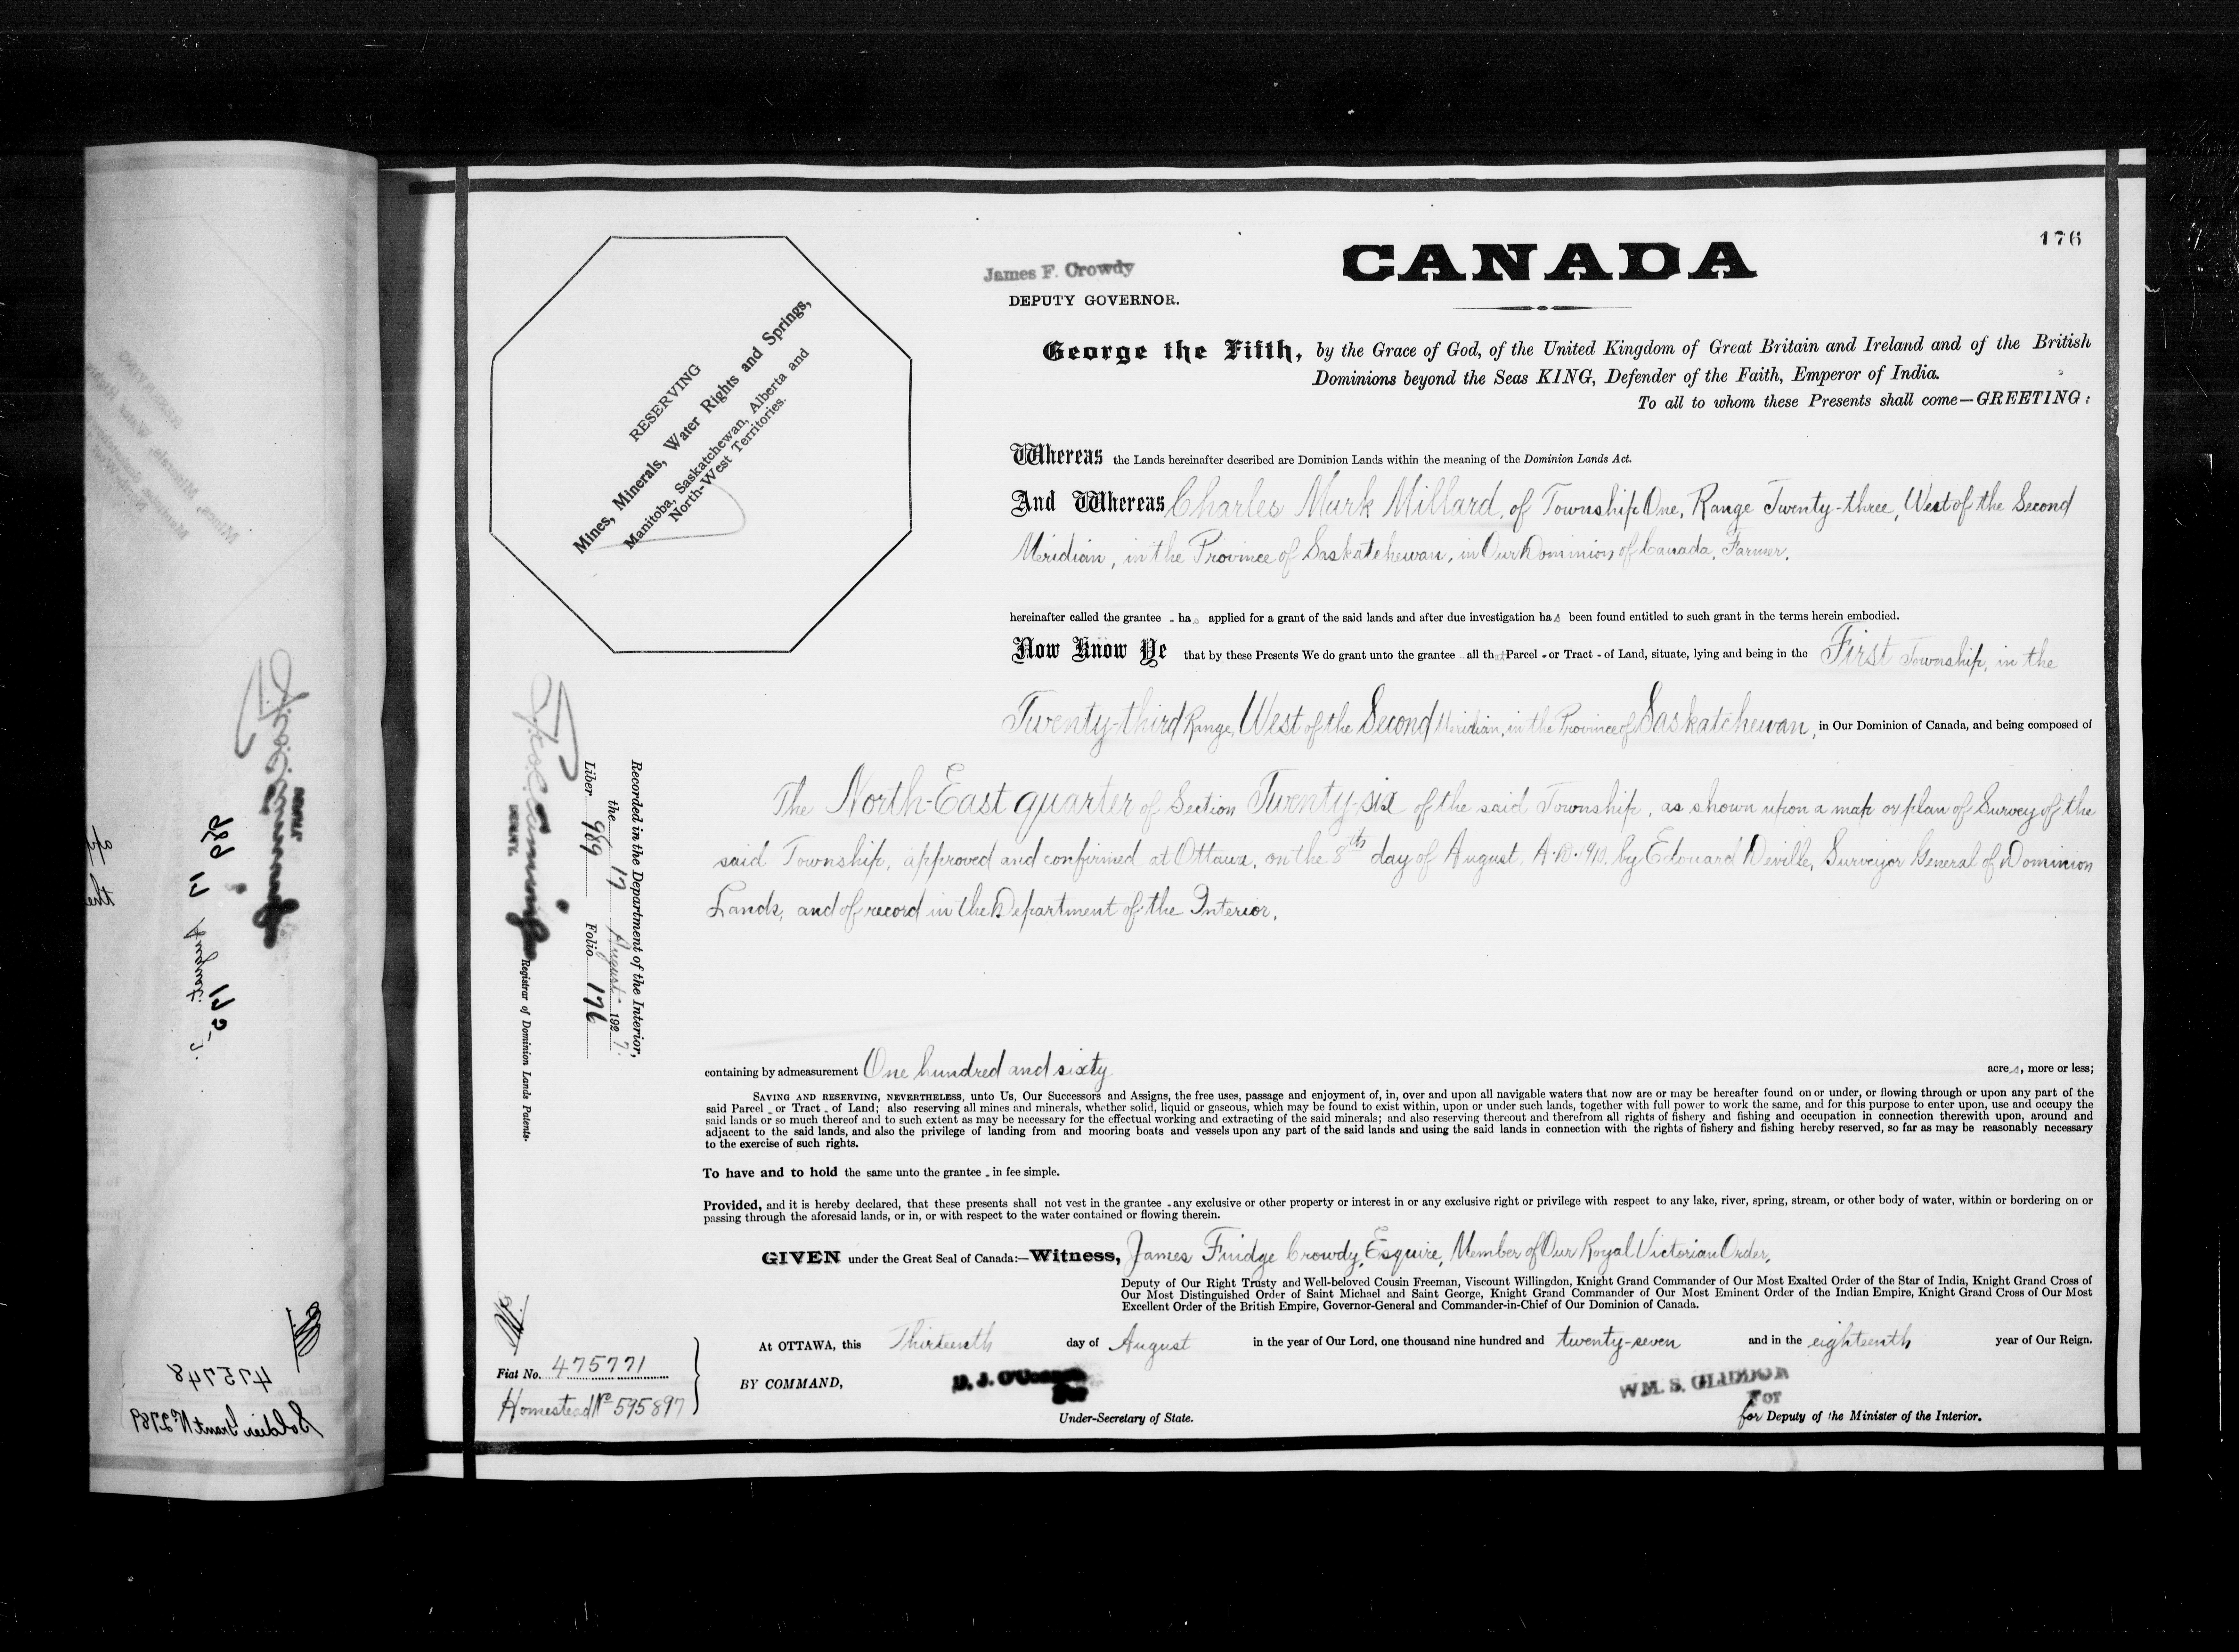 176
CANADA
James F. Crowdy
DEPUTY GOVERNOR.
George the Fifth, by the Grace of God, of the United Kingdom of Great Britain and Ireland and of the British
Dominions beyond the Seas KING, Defender of the Faith, Emperor of India.
To all to whom these Presents shall come—GREETING:
RESERVING
Mines, Minerals, Water Rights and Springs,
Manitoba, Saskatchewan, Alberta and
North-West Territories.
Whereas the Lands hereinafter described are Dominion Lands within the meaning of the Dominion Lands Act.
And Whereas Charles Mark Millard, of Township One, Range Twenty-three, West of the Second
Meridian, in the Province of Saskatchewan, in Our Dominion of Canada, Farmer,
hereinafter called the grantee - has applied for a grant of the said lands and after due investigation has been found entitled to such grant in the terms herein embodied.
Now Know Ye that by these Presents We do grant unto the grantee all that Parcel - or Tract - of Land, situate, lying and being in the First Township, in the
Twenty-third Range, West of the Second Meridian, in the Province of Saskatchewan, in Our Dominion of Canada, and being composed of
The North-East quarter of Section Twenty-six of the said Township, as shown upon a map or plan of Survey of the
said Township, approved and confirmed at Ottawa, on the 8th day of August, A.D. 1910. by Edouard Deville, Surveyor General of Dominion
Lands, and of record in the Department of the Interior,
containing by admeasurement One hundred and sixty acres, more or less;
SAVING AND RESERVING, NEVERTHELESS, unto Us, Our Successors and Assigns, the free uses, passage and enjoyment of, in, over and upon all navigable waters that now are or may be hereafter found on or under, or flowing through or upon any part of the
said Parcel - or Tract - of Land; also reserving all mines and minerals, whether solid, liquid or gaseous, which may be found to exist within, upon or under such lands, together with full power to work the same, and for this purpose to enter upon, use and occupy the
said lands or so much thereof and to such extent as may be necessary for the effectual working and extracting of the said minerals; and also reserving thereout and therefrom all rights of fishery and fishing and occupation in connection therewith upon, around and
adjacent to the said lands, and also the privilege of landing from and mooring boats and vessels upon any part of the said lands and using the said lands in connection with the rights of fishery and fishing hereby reserved, so far as may be reasonably necessary
to the exercise of such rights.
To have and to hold the same unto the grantee - in fee simple.
Provided, and it is hereby declared, that these presents shall not vest in the grantee - any exclusive or other property or interest in or any exclusive right or privilege with respect to any lake, river, spring, stream, or other body of water, within or bordering on or
passing through the aforesaid lands, or in, or with respect to the water contained or flowing therein.
GIVEN under the Great Seal of Canada:—Witness, James Fuidge Crowdy, Esquire, Member of Our Royal Victorian Order,
Deputy of Our Right Trusty and Well-beloved Cousin Freeman, Viscount Willingdon, Knight Grand Commander of Our Most Exalted Order of the Star of India, Knight Grand Cross of
Our Most Distinguished Order of Saint Michael and Saint George, Knight Grand Commander of Our Most Eminent Order of the Indian Empire, Knight Grand Cross of Our Most
Excellent Order of the British Empire, Governor-General and Commander-in-Chief of Our Dominion of Canada.
At OTTAWA, this Thirteenth day of August in the year of Our Lord, one thousand nine hundred and twenty-seven and in the eighteenth year of Our Reign.
BY COMMAND,
For
Under-Secretary of State.
WM. S. GLIDDON
For
for Deputy of the Minister of the Interior.
Recorded in the Department of the Interior,
the 17 August 1927.
Liber 989 Folio 176
Registrar of Dominion Lands Patents.
Fiat No. 475771
Homestead No 595897
989
17 August
175
475748
Soldier Grant No 2789